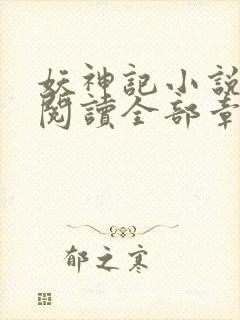 妖神記小說
閱讀全部章
郁之寒